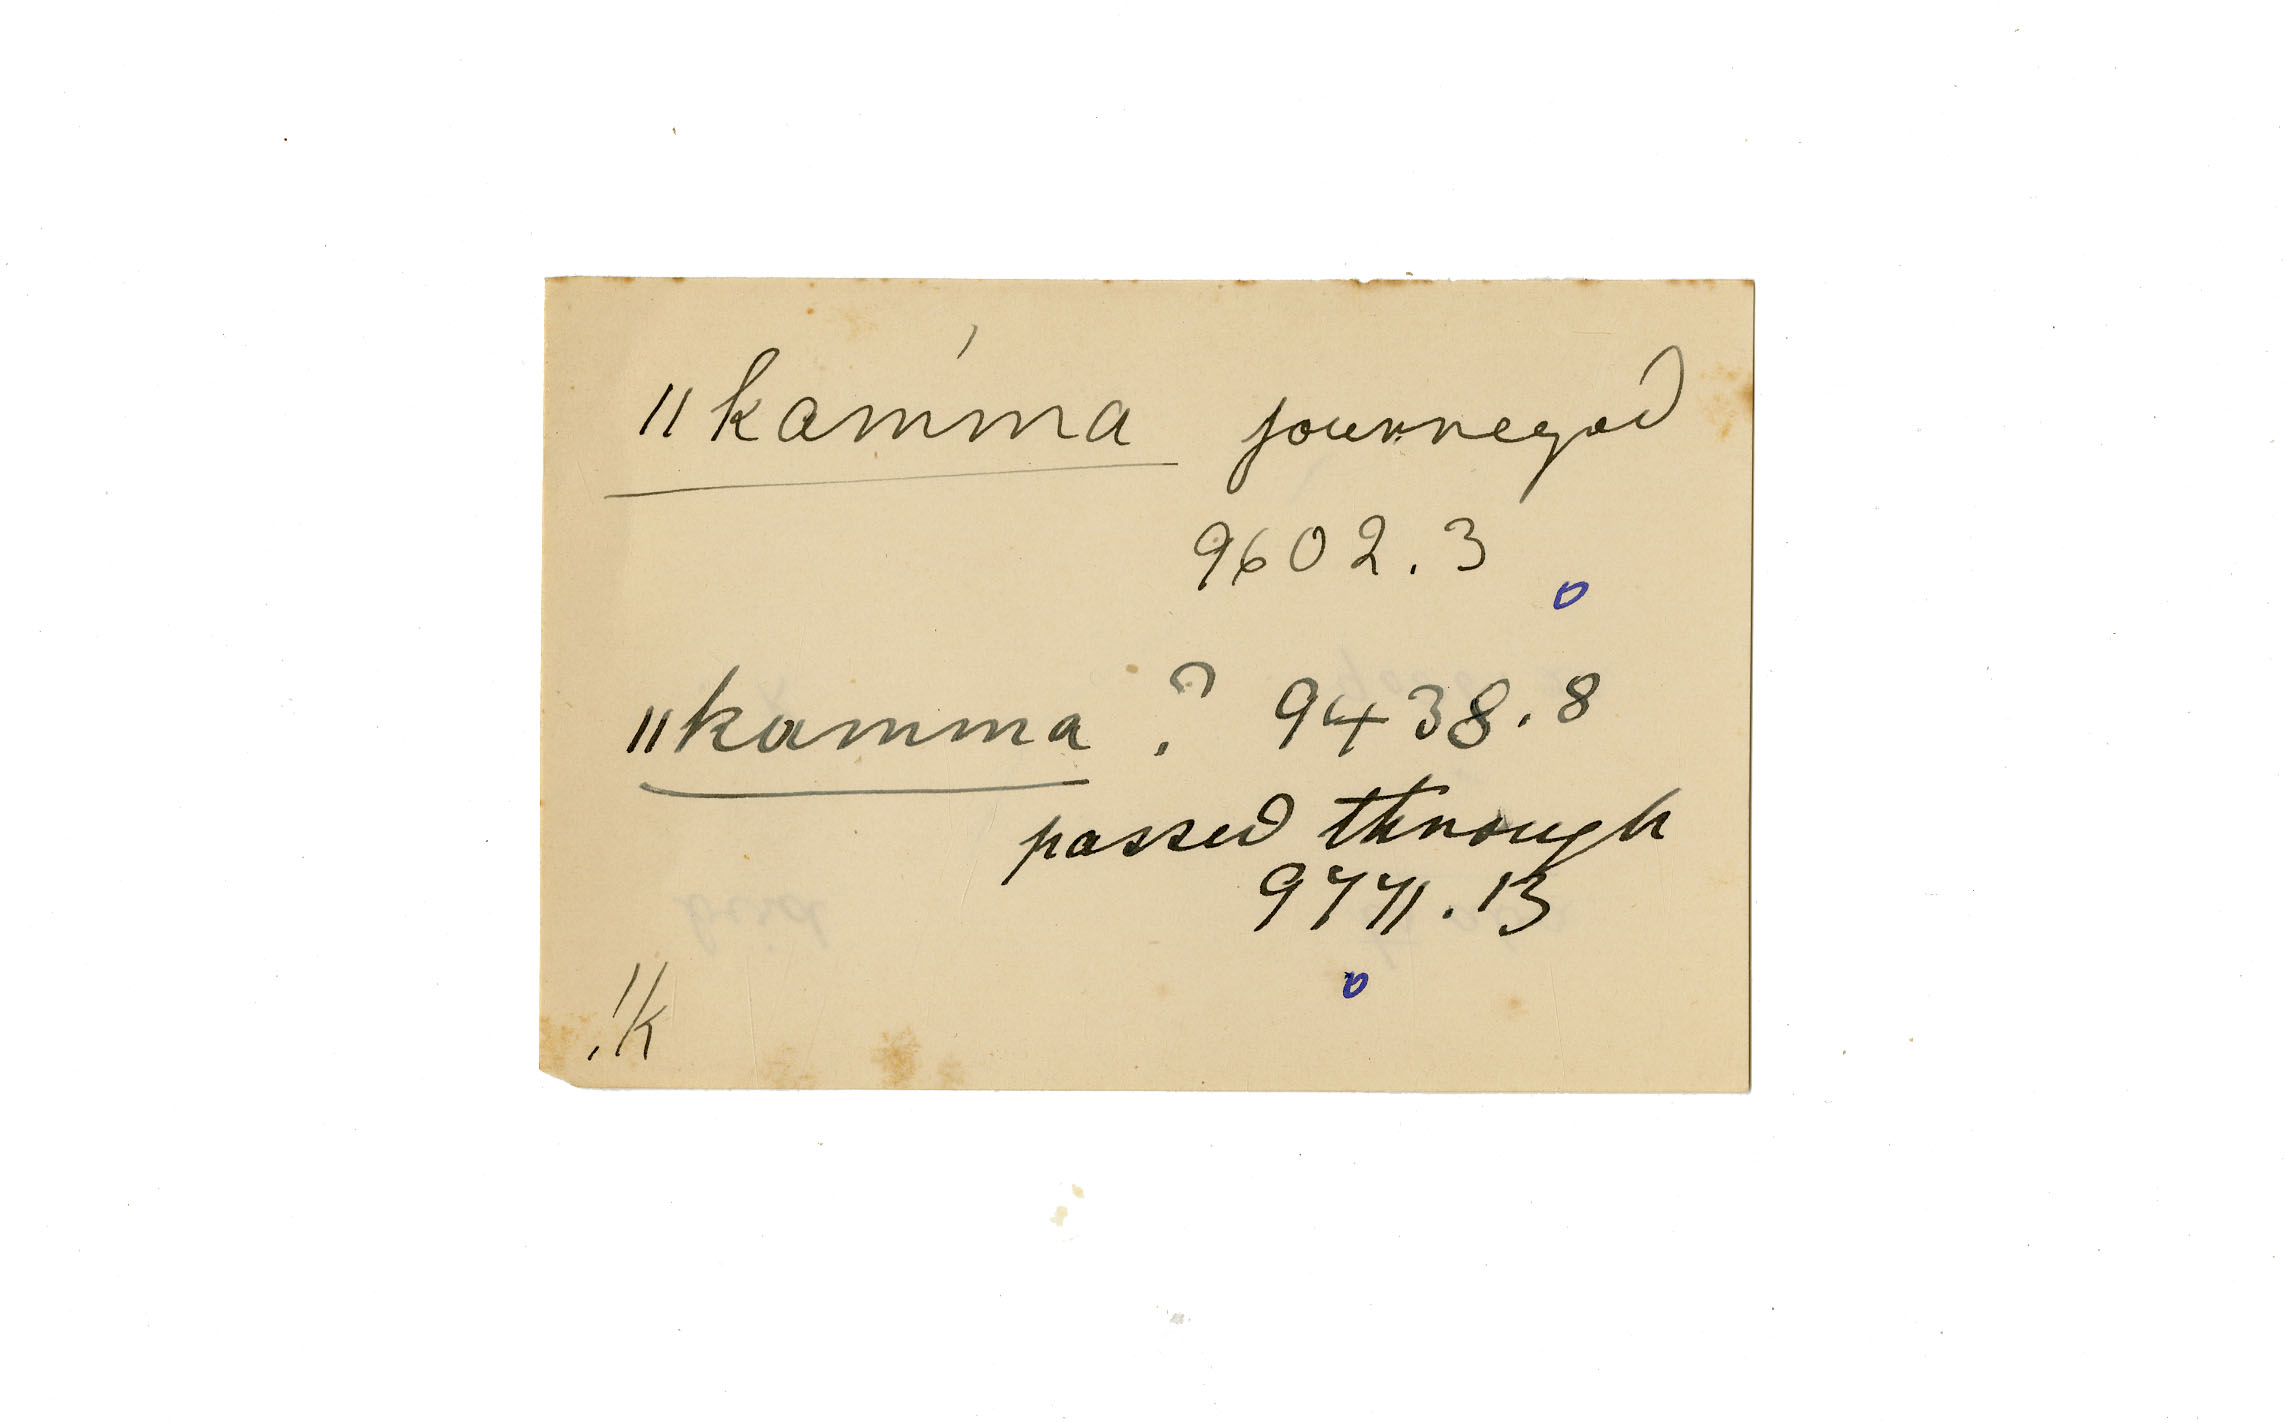 ǁkam'ma journeyed
9602.3
o
ǁkamma ? 9438.8
passed through
9771.13
o
!k